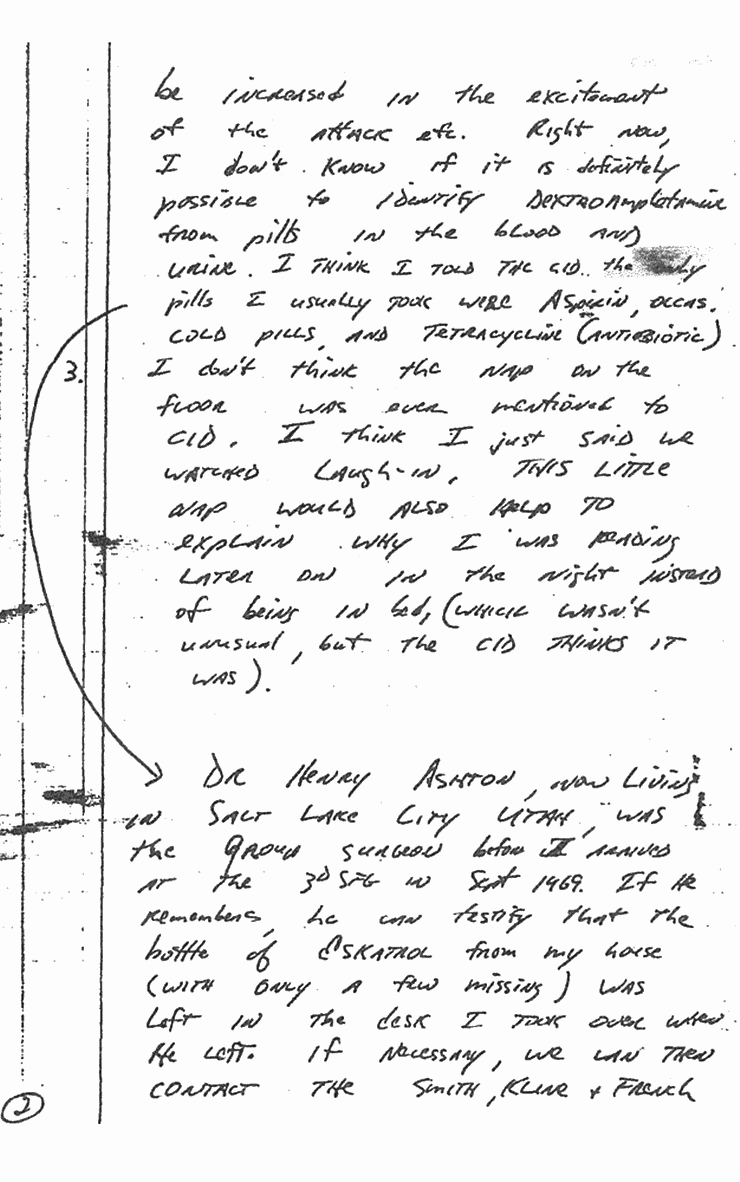 be increased in the excitement
of the attack etc. Right now,
I don't know if it is definitely
possible to identify Dextroamphetamine
from pills in the blood and
urine. I think I told the CID the only
pills I usually took were Aspirin, occas.
cold pills, and Tetracycline (antibiotic)
3. I don't think the nap on the
floor was ever mentioned to
CID. I think I just said we
watched Laugh-in. This little
nap would also help to
explain why I was reading
later on in the night instead
of being in bed, (which wasn't
unusual, but the CID thinks it
was).
Dr Henry Ashton, now living
in Salt Lake City Utah, was
the Group surgeon before I arrived
at the 3d SFG in Sept 1969. If he
remembers, he can testify that the
bottle of Eskatrol from my house
(with only a few missing) was
left in the desk I took over when
he left. If necessary, we can then
contact the Smith, Kline + French
2